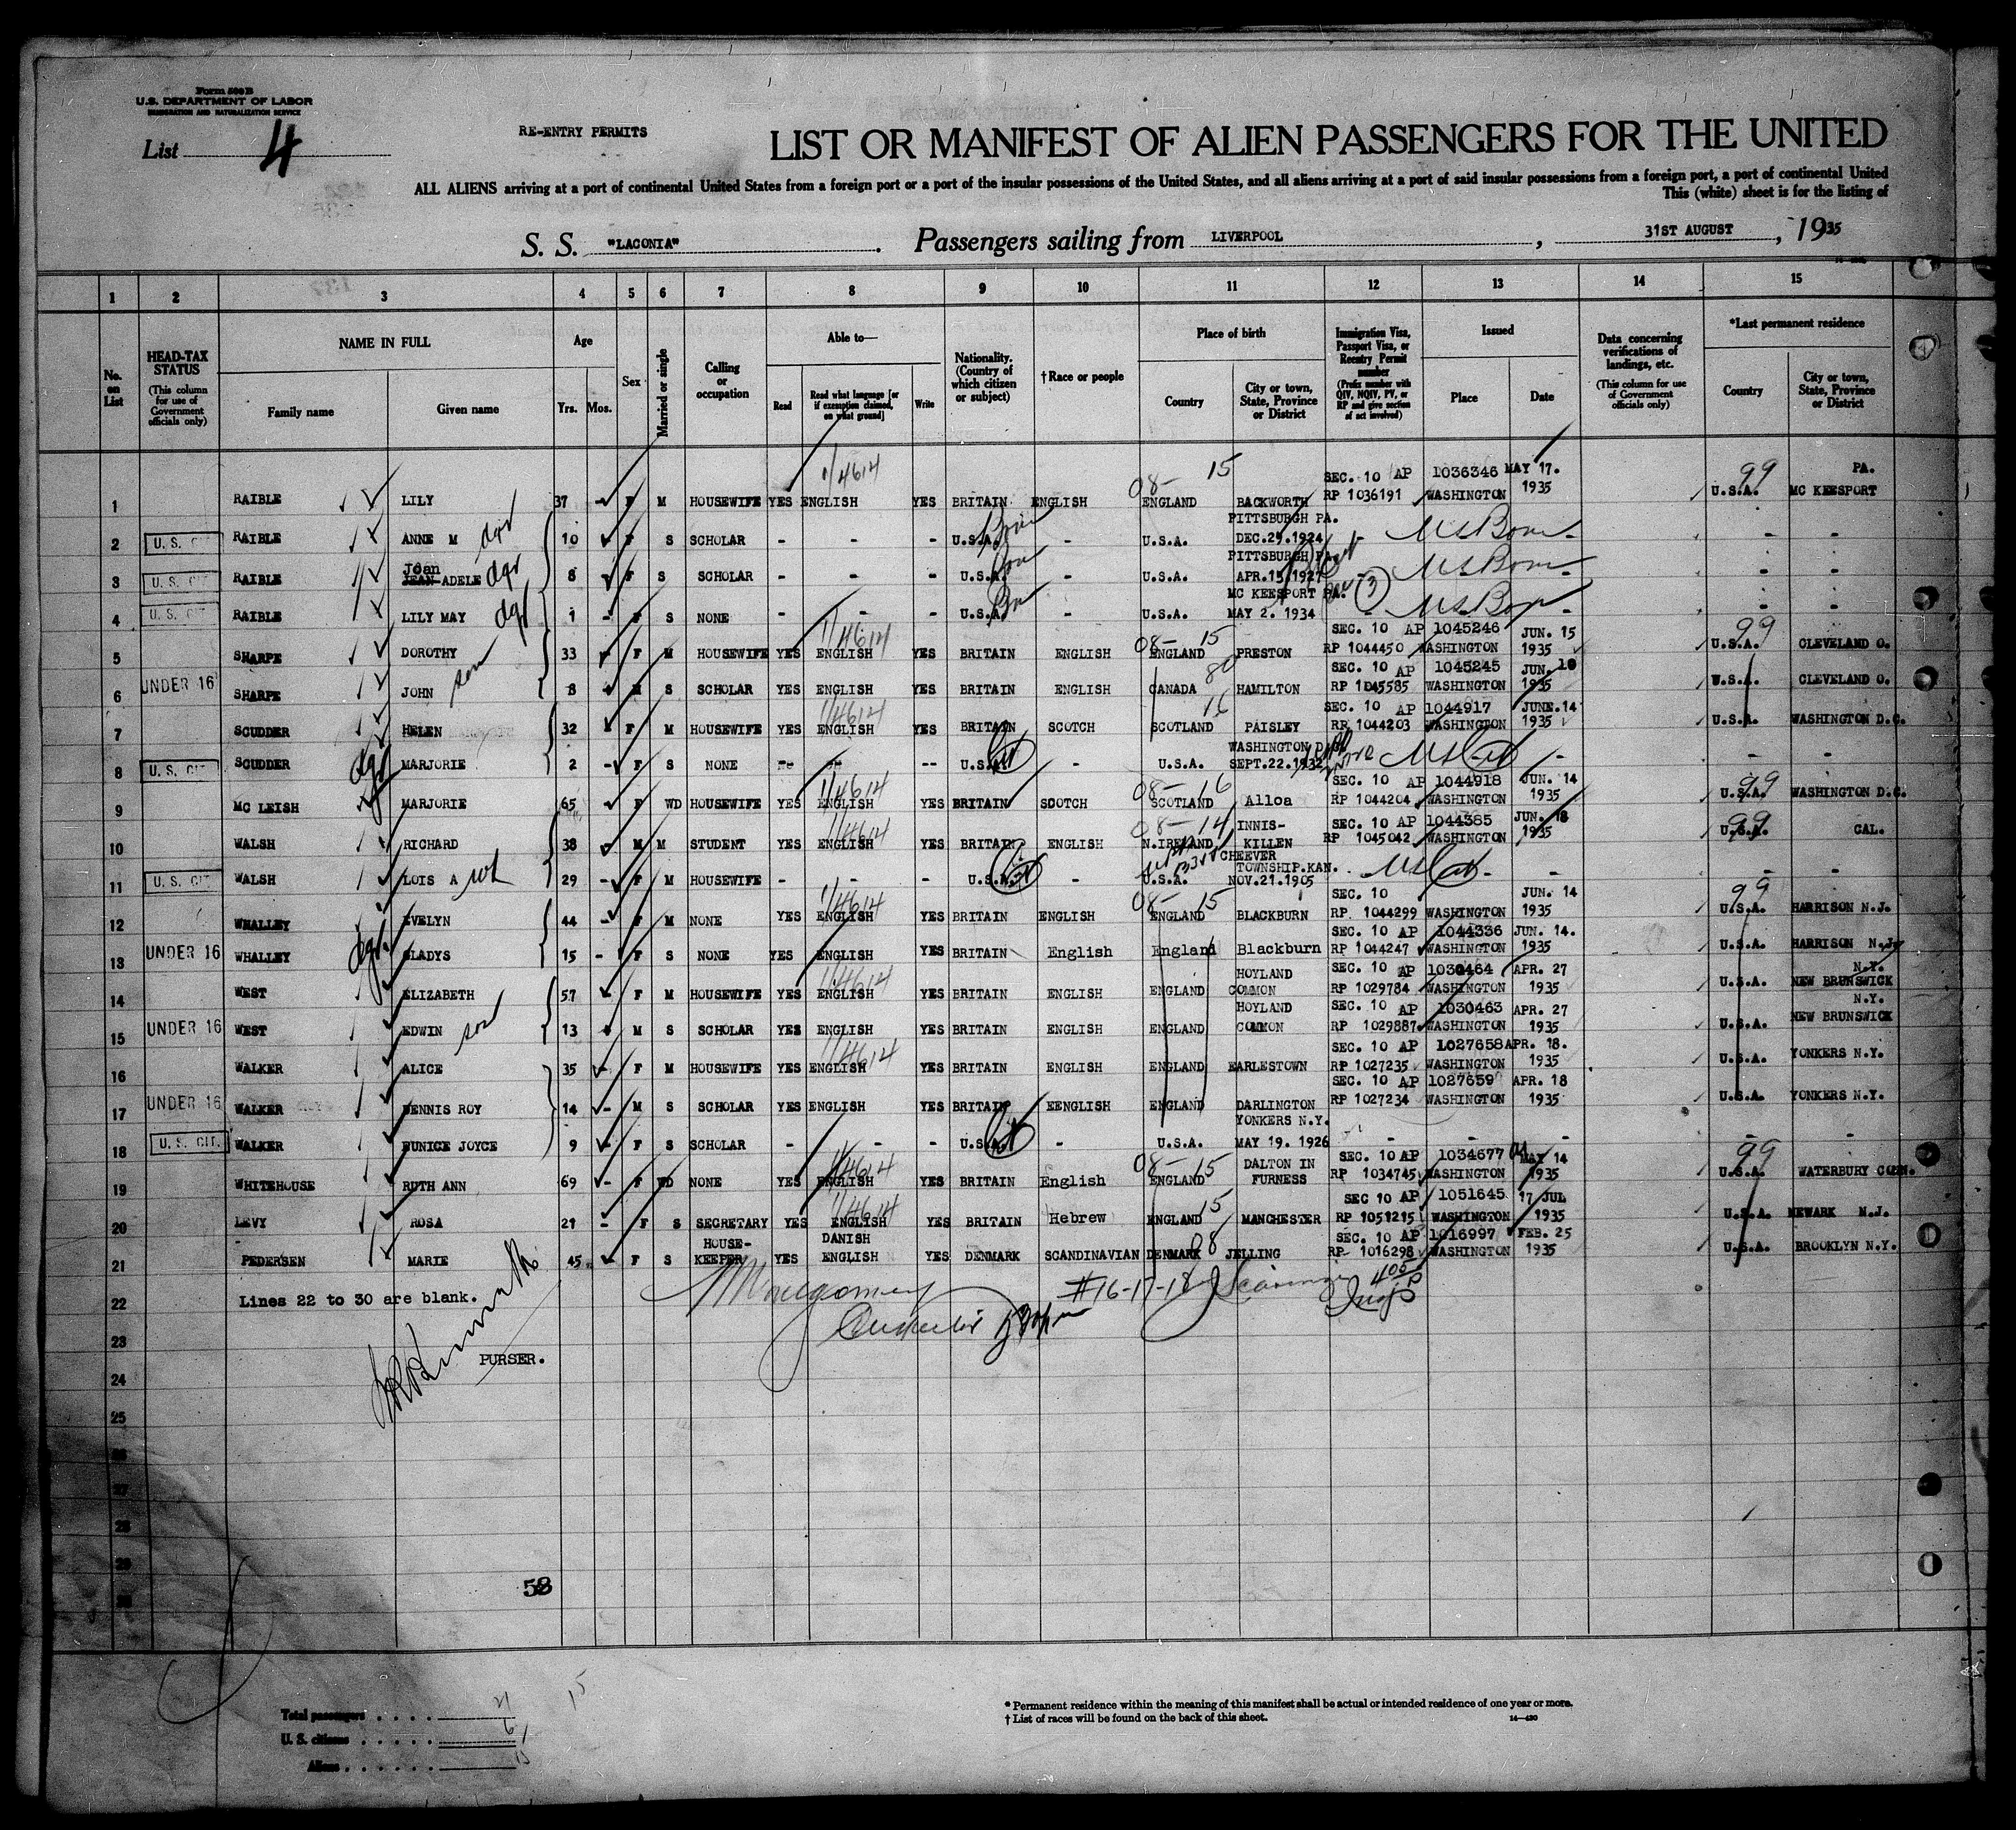 Form 500 B
U.S. DEPARTMENT OF LABOR
IMMIGRATION AND NATURALIZATION SERVICE
List 4
RE-ENTRY PERMITS
LIST OR MANIFEST OF ALIEN PASSENGERS FOR THE UNITED
ALL ALIENS arriving at a port of continental United States from a foreign port or a port of the insular possessions of the United States, and all aliens arriving at a port of said insular possessions from a foreign port, a port of continental United
This (white) sheet is for the listing of
S. S. "LACONIA". Passengers sailing from LIVERPOOL, 31ST AUGUST, 1935
1 2 3 4 5 6 7 8 9 10 11 12 13 14 15
No. on List
HEAD-TAX STATUS (This column for use of Government officials only)
NAME IN FULL Family name Given name
Age Yrs. Mos.
Sex
Married or single
Calling or occupation
Able to— Read Read what language [or if exemption claimed, on what ground] Write
Nationality. (Country of which citizen or subject)
†Race or people
Place of birth Country City or town, State, Province or District
Immigration Visa, Passport Visa, or Reentry Permit number (Prefix number with QIV, NQIV, PV, or RP and give section of act involved)
Issued Place Date
Data concerning verifications of landings, etc. (This column for use of Government officials only)
*Last permanent residence Country City or town, State, Province or District
1/4614 08- 15 SEC. 10 AP 1036346 MAY 17. 99 PA.
1 RAIBLE LILY 37 - F M HOUSEWIFE YES ENGLISH YES BRITAIN ENGLISH ENGLAND BACKWORTH RP 1036191 WASHINGTON 1935 U.S.A. MC KEESPORT
PITTSBURGH PA.
2 U. S. CIT RAIBLE ANNE M dgr 10 F S SCHOLAR - - - U.S.A. Born - U.S.A. DEC.29.1924 - US Born - - -
Joan PITTSBURGH PA.
3 U. S. CIT RAIBLE JEAN ADELE dgr 8 F S SCHOLAR - - - U.S.A. Born - U.S.A. APR.15.1927 US Born - - -
MC KEESPORT PA. 3
4 U. S. CIT RAIBLE LILY MAY dgr 1 - F S NONE - - - U.S.A. - U.S.A. MAY 2. 1934 - US Born - - -
1/4614 08- 15 SEC. 10 AP 1045246 JUN. 15 99
5 SHARPE DOROTHY 33 F M HOUSEWIFE YES ENGLISH YES BRITAIN ENGLISH ENGLAND PRESTON RP 1044450 WASHINGTON 1935 U.S.A. CLEVELAND O.
80 SEC. 10 AP 1045245 JUN. 18
6 UNDER 16 SHARPE JOHN son 8 M S SCHOLAR YES ENGLISH YES BRITAIN ENGLISH CANADA HAMILTON RP 1045585 WASHINGTON 1935 U.S.A. CLEVELAND O.
1/4614 16 SEC. 10 AP 1044917 JUNE.14
7 SCUDDER HELEN 32 F M HOUSEWIFE YES ENGLISH YES BRITAIN SCOTCH SCOTLAND PAISLEY RP 1044203 WASHINGTON 1935 U.S.A. WASHINGTON D.C.
WASHINGTON D.C.
8 U. S. CIT SCUDDER dgr MARJORIE 2 - F S NONE -- -- -- U.S.A. - U.S.A. SEPT.22.1932 - - -
1/4614 08- 16 SEC. 10 AP 1044918 JUN. 14 99
9 MC LEISH MARJORIE 65 F WD HOUSEWIFE YES ENGLISH YES BRITAIN SCOTCH SCOTLAND Alloa RP 1044204 WASHINGTON 1935 U.S.A. WASHINGTON D.C.
1/4614 08- 14 INNIS- SEC. 10 AP 1044385 JUN. 18 99
10 WALSH RICHARD 38 M M STUDENT YES ENGLISH YES BRITAIN ENGLISH N.IRELAND KILLEN RP 1045042 WASHINGTON 1935 U.S.A. CAL.
CHEEVER TOWNSHIP.KAN.
11 U. S. CIT WALSH LOIS A 29 - F M HOUSEWIFE - - - U.S.A. - U.S.A. NOV.21.1905 - - -
1/4614 08- 15 SEC. 10 JUN. 14 99
12 WHALLEY EVELYN 44 - F M NONE YES ENGLISH YES BRITAIN ENGLISH ENGLAND BLACKBURN RP 1044299 WASHINGTON 1935 U.S.A. HARRISON N.J.
SEC. 10 AP 1044336 JUN. 14.
13 UNDER 16 WHALLEY dgr. GLADYS 15 - F S NONE YES ENGLISH YES BRITAIN English England Blackburn RP 1044247 WASHINGTON 1935 U.S.A. HARRISON N.J.
1/4614 HOYLAND SEC. 10 AP 1030464 APR. 27 N.Y.
14 WEST ELIZABETH 57 - F M HOUSEWIFE YES ENGLISH YES BRITAIN ENGLISH ENGLAND COMMON RP 1029784 WASHINGTON 1935 U.S.A. NEW BRUNSWICK
HOYLAND SEC. 10 AP 1030463 APR. 27 N.Y.
15 UNDER 16 WEST EDWIN son 13 M S SCHOLAR YES ENGLISH YES BRITAIN ENGLISH ENGLAND COMMON RP 1029887 WASHINGTON 1935 U.S.A. NEW BRUNSWICK
1/4614 SEC. 10 AP 1027658 APR. 18.
16 WALKER ALICE 35 - F M HOUSEWIFE YES ENGLISH YES BRITAIN ENGLISH ENGLAND EARLESTOWN RP 1027235 WASHINGTON 1935 U.S.A. YONKERS N.Y.
SEC. 10 AP 1027659 APR. 18
17 UNDER 16 WALKER DENNIS ROY 14 - M S SCHOLAR YES ENGLISH YES BRITAIN EENGLISH ENGLAND DARLINGTON RP 1027234 WASHINGTON 1935 U.S.A. YONKERS N.Y.
YONKERS N.Y.
18 U. S. CIT. WALKER EUNICE JOYCE 9 - F S SCHOLAR - - - U.S.A. - U.S.A. MAY 19. 1926 - - - - -
1/4614 08- 15 DALTON IN SEC. 10 AP 1034677 MAY 14 99
19 WHITEHOUSE RUTH ANN 69 - F WD NONE YES ENGLISH YES BRITAIN English ENGLAND FURNESS RP 1034745 WASHINGTON 1935 U.S.A. WATERBURY CONN.
1/4614 15 SEC 10 AP 1051645 17 JUL
20 LEVY ROSA 21 - F S SECRETARY YES ENGLISH YES BRITAIN Hebrew ENGLAND MANCHESTER RP 1051215 WASHINGTON 1935 U.S.A. NEWARK N.J.
HOUSE- DANISH 08 SEC. 10 AP 1016997 FEB. 25
21 PEDERSEN MARIE 45 - F S KEEPER YES ENGLISH YES DENMARK SCANDINAVIAN DENMARK JELLING RP 1016298 WASHINGTON 1935 U.S.A. BROOKLYN N.Y.
22 Lines 22 to 30 are blank. Montgomery #16-17-18
23
PURSER.
24
25
26
27
28
29
30
58
Total passengers . . . . 21
U. S. citizens . . . . . 6
Aliens . . . . . . 15
15
* Permanent residence within the meaning of this manifest shall be actual or intended residence of one year or more.
† List of races will be found on the back of this sheet. 14—430